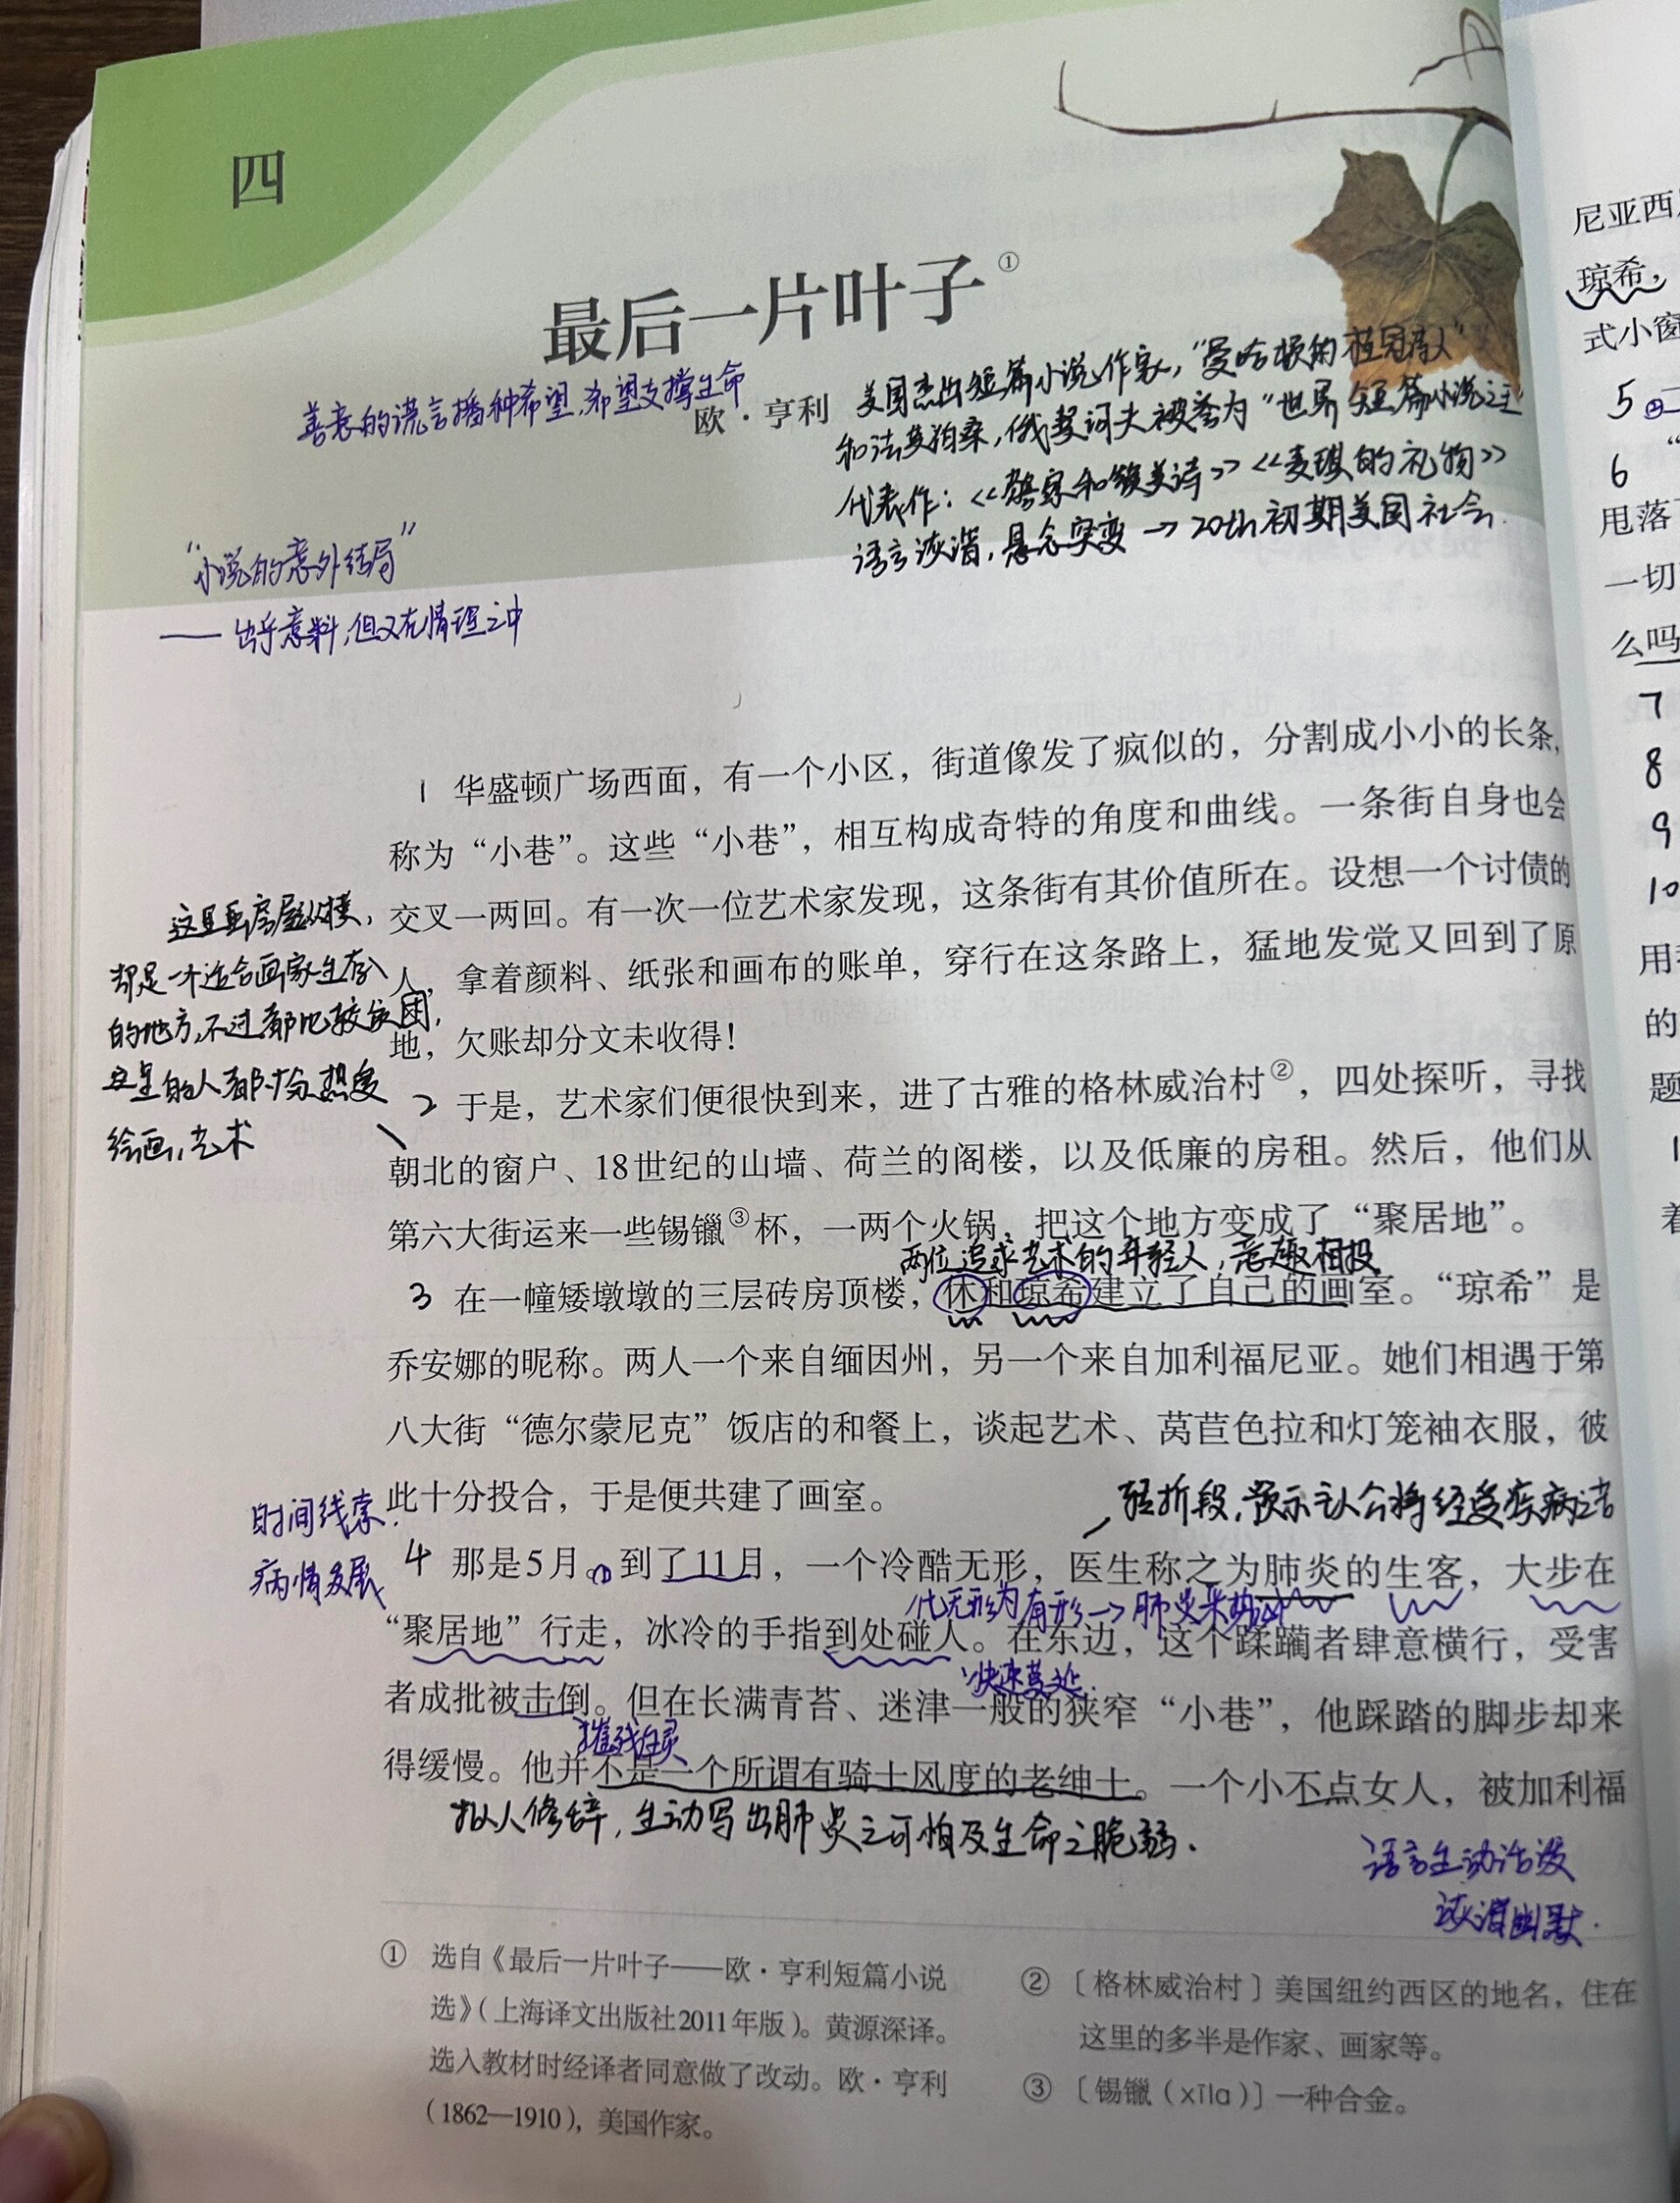 四
最后一片叶子①
善意的谎言播种希望,希望支撑生命
欧·亨利
美国杰出短篇小说作家,“曼哈顿的桂冠诗人”
和法莫泊桑,俄契诃夫被誉为“世界短篇小说之王
代表作:<<警察和赞美诗>> <<麦琪的礼物>>
语言诙谐,悬念突变→20th初期美国社会.
“小说的意外结局”
——出乎意料,但又在情理之中
1 华盛顿广场西面，有一个小区，街道像发了疯似的，分割成小小的长条，
称为“小巷”。这些“小巷”，相互构成奇特的角度和曲线。一条街自身也会
交叉一两回。有一次一位艺术家发现，这条街有其价值所在。设想一个讨债的
人，拿着颜料、纸张和画布的账单，穿行在这条路上，猛地发觉又回到了原
地，欠账却分文未收得！
这里虽房屋纵横,
却是一个适合画家生存
的地方,不过都比较贫困,
这里的人都十分热爱
绘画,艺术
2 于是，艺术家们便很快到来，进了古雅的格林威治村②，四处探听，寻找
朝北的窗户、18世纪的山墙、荷兰的阁楼，以及低廉的房租。然后，他们从
第六大街运来一些锡镴③杯，一两个火锅，把这个地方变成了“聚居地”。
两位追求艺术的年轻人,志趣相投
3 在一幢矮墩墩的三层砖房顶楼，休和琼希建立了自己的画室。“琼希”是
乔安娜的昵称。两人一个来自缅因州，另一个来自加利福尼亚。她们相遇于第
八大街“德尔蒙尼克”饭店的和餐上，谈起艺术、莴苣色拉和灯笼袖衣服，彼
此十分投合，于是便共建了画室。
转折段,预示主人公将经受疾病之苦
时间线索.
病情发展
4 那是5月。①到了11月，一个冷酷无形，医生称之为肺炎的生客，大步在
化无形为有形→肺炎来势汹汹
“聚居地”行走，冰冷的手指到处碰人。在东边，这个蹂躏者肆意横行，受害
快速蔓延.
者成批被击倒。但在长满青苔、迷津一般的狭窄“小巷”，他踩踏的脚步却来
摧残生灵
得缓慢。他并不是一个所谓有骑士风度的老绅士。一个小不点女人，被加利福
拟人修辞,生动写出肺炎之可怕及生命之脆弱.
语言生动活泼
诙谐幽默.
① 选自《最后一片叶子——欧·亨利短篇小说
选》（上海译文出版社2011年版）。黄源深译。
选入教材时经译者同意做了改动。欧·亨利
（1862—1910），美国作家。
② 〔格林威治村〕美国纽约西区的地名，住在
这里的多半是作家、画家等。
③ 〔锡镴（xīla）〕一种合金。
尼亚西
琼希，
式小窗
5 ②
6 “
甩落
一切
么吗
7
8
9
10
用
的
题
着